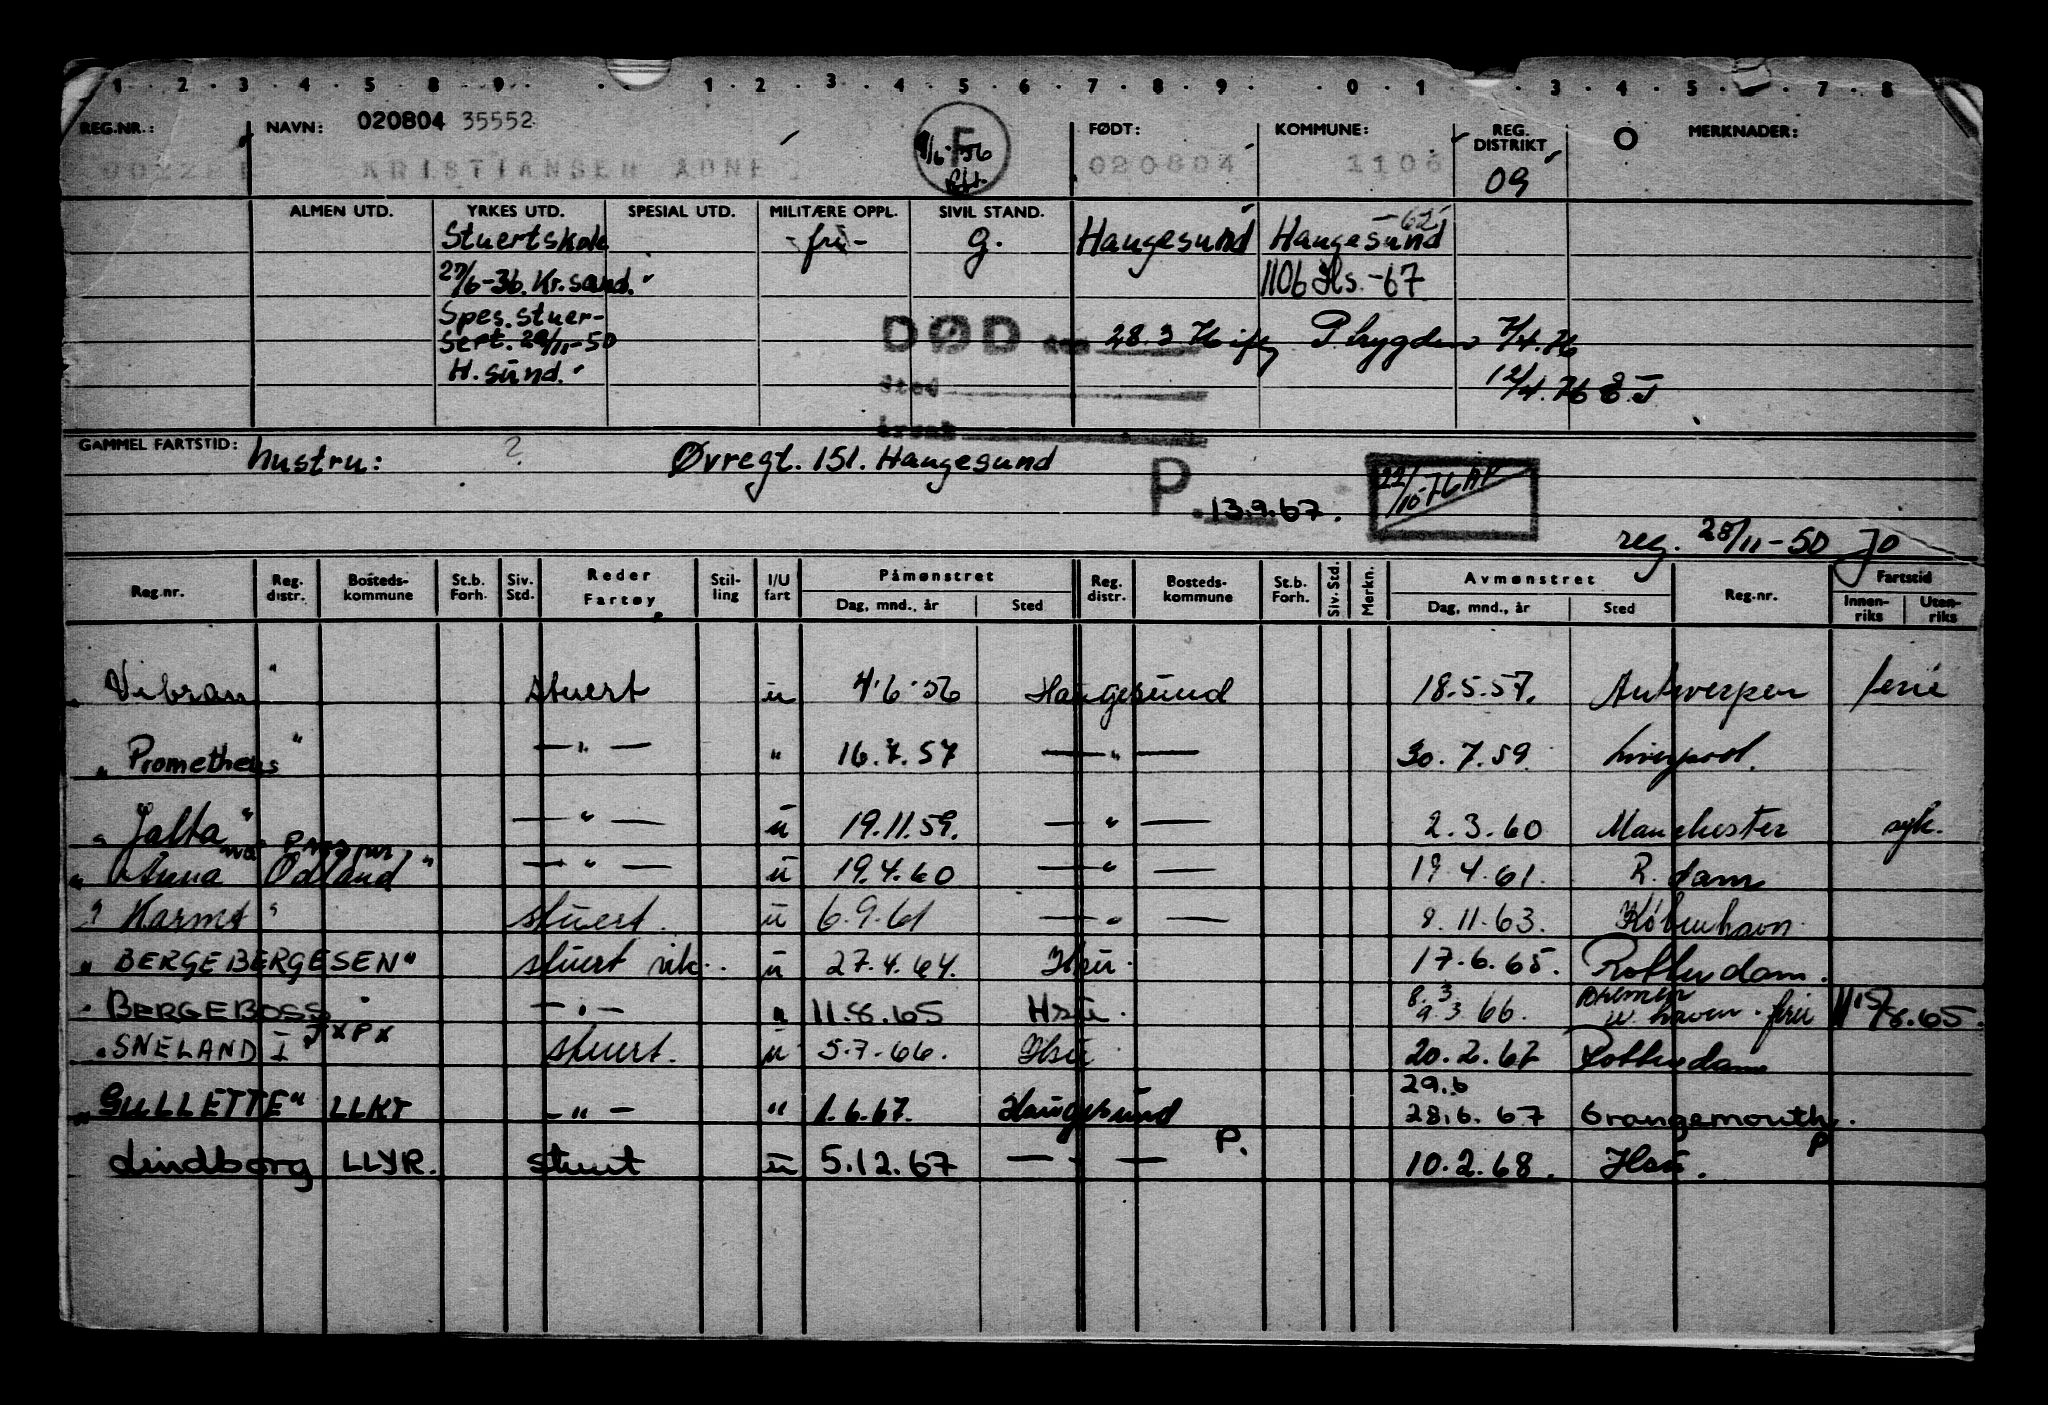 1 2 3 4 5 8 9 1 2 3 4 5 6 7 8 9 0 1 3 4 5 7 8
REG.NR.: NAVN: 020804 35552 FØDT: KOMMUNE: REG. DISTRIKT MERKNADER:
KRISTIANSEN ADNE F 020804 1106 09
ALMEN UTD. YRKES UTD. SPESIAL UTD. MILITÆRE OPPL. SIVIL STAND.
Stuertskole -fri- g. Haugesund Haugesund -62
27/6-36. Kr.sand. 1106 Hs. -67
Spes. stuer-
sert. 28/11-50 DØD 28.3.76 ifg. 7/4.76
H.sund. Sted 12/4.76
GAMMEL FARTSTID: hustru: ? Øvregt. 151. Haugesund
P. 13.9.67.
reg. 28/11-50 Jo
Reg.nr. Reg. distr. Bosteds-kommune St.b. Forh. Siv. Std. Reder Fartøy Stil-ling I/U fart Påmønstret Dag, mnd., år Sted Reg. distr. Bosteds-kommune St.b. Forh. Siv. Std. Merkn. Avmønstret Dag, mnd., år Sted Reg.nr. Fartstid Innen-riks Uten-riks
"Vibran" stuert u 4.6.56 Haugesund 18.5.57. Antwerpen ferie
"Prometheus" —"— " 16.7.57 —"— 30.7.59. Liverpool.
"Jalta" —"— u 19.11.59. —"— 2.3.60 Manchester syk.
"Anna Odland" —"— u 19.4.60 —"— 19.4.61. R.dam
"Karmt" stuert. u 6.9.61 —"— 8.11.63. København.
"BERGEBERGESEN" stuert vik. u 27.4.64. Hsu. 17.6.65. Rotterdam.
"BERGEBOSS" —"— " 11.8.65 Hsu. 8.3 9.3 66. Bremen w. haven. ferie 11 15/8.65.
"SNELAND I" JXPX stuert. u 5.7.66. Hsu 20.2.67 Rotterdam
"GULLETTE" LLKT —"— " 1.6.67. Haugesund 29.6 28.6.67 Grangemouth.
Lindborg LLYR. stuert u 5.12.67 —"— P. 10.2.68. Hsu. P